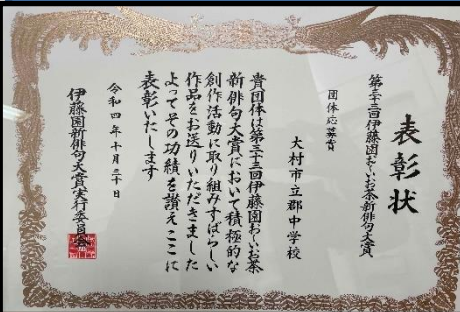 表彰状
第三十三回伊藤園お〜いお茶新俳句大賞
団体応募賞
大村市立郡中学校
貴団体は第三十三回伊藤園お〜いお茶
新俳句大賞において積極的な
創作活動に取り組みすばらしい
作品をお送りいただきました
よってその功績を讃えここに
表彰いたします
令和四年十月三十日
伊藤園新俳句大賞実行委員会